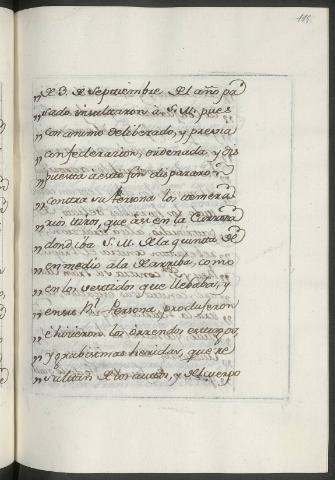 115.
„ de 3. de Septiembre del año pa
„ sado insultaron â S. M. pues
„ con animo deliberado, y previa
„ confederacion, ordenada y dis
„ puesta â este fin dispararon
„ contra su Persona los temera
„ rios tiros, que asi en la Carroza
„ donde iba S. M. de la quinta de
„ en medio â la de arriba, como
„ en los vestidos que llebaba, y
„ en su Rl. Persona, produjeron
„ é hicieron los orrendos estragos,
„ y grabisimas heridas, que re
„ sultan de los autos, y del cuerpo